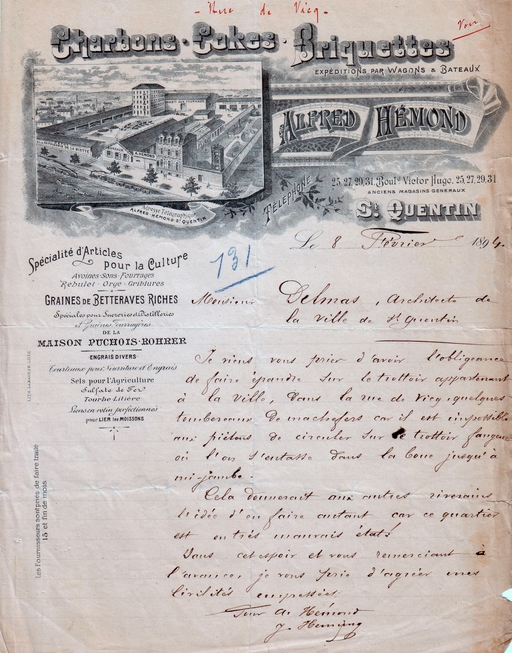 - Rue de Vicq -
Voir
Charbons - Cokes - Briquettes
EXPÉDITIONS PAR WAGONS & BATEAUX
ALFRED HÉMOND
TÉLÉPHONE
25, 27, 29, 31, Boul.d Victor Hugo, 25, 27, 29, 31
ANCIENS MAGASINS GÉNÉRAUX
ST QUENTIN
Adresse Télégraphique
ALFRED-HÉMOND-ST QUENTIN
Le 8 Février 1894.
131
Spécialité d'Articles
pour la Culture
Avoines-Sons-Fourrages
Rebulet - Orge - Criblures
GRAINES DE BETTERAVES RICHES
Spéciales pour Sucreries & Distilleries
et Graines Fourragères
DE LA
MAISON PUCHOIS-ROHRER
ENGRAIS DIVERS
Tourteaux pour Nourriture et Engrais
Sels pour l'Agriculture
Sulfate de Fer
Tourbe Litière
Liens en coton perfectionnés
pour LIER les MOISSONS
Les fournisseurs sont priés de faire traite
15 et fin de mois
Monsieur Delmas, Architecte de
la ville de St Quentin
Je viens vous prier d'avoir l'obligeance
de faire épandre sur le trottoir appartenant
à la ville, Dans la rue de Vicq quelques
tombereaux de machefers car il est impossible
aux piétons de circuler sur le trottoir fangeux
où l'on s'entasse dans la boue jusqu'à
mi-jambe.
Cela donnerait aux autres riverains
l'idée d'en faire autant car ce quartier
est en très mauvais état!
Dans cet espoir et vous remerciant à
l'avance, je vous prie d'agréer mes
civilités empressées
Pour A. Hémond